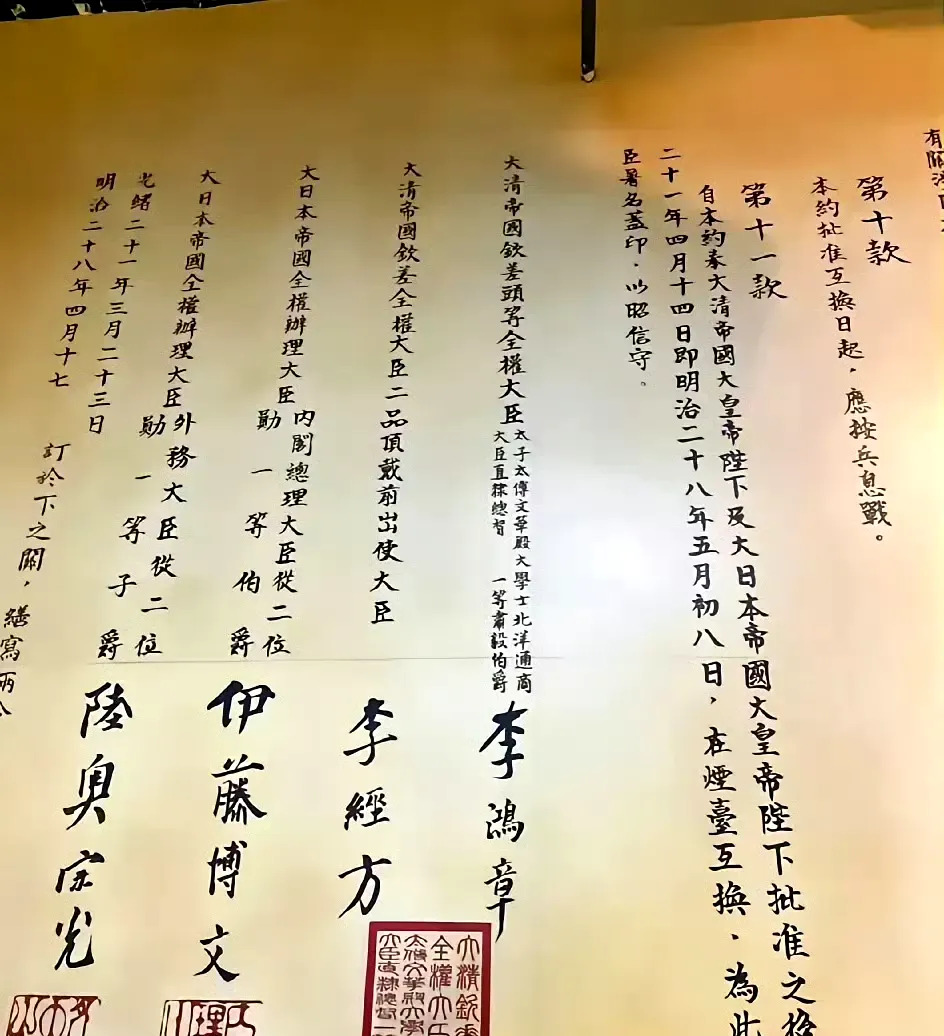 有關
第十款
本約批准互換日起，應按兵息戰。
第十一款
自本約奉大清帝國大皇帝陛下及大日本帝國大皇帝陛下批准之後
二十一年四月十四日即明治二十八年五月初八日，在煙臺互換．為此
臣署名蓋印．以昭信守。
大清帝國欽差頭等全權大臣
太子太傅文華殿大學士北洋通商
大臣直隸總督 一等肅毅伯爵
李鴻章
大清帝國欽差全權大臣二品頂戴前出使大臣
李經方
大日本帝國全權辦理大臣
內閣總理大臣從二位
勛一等伯爵
伊藤博文
大日本帝國全權辦理大臣
外務大臣從二位
勛一等子爵
陸奧宗光
光緒二十一年三月二十三日
明治二十八年四月十七
訂於下之關，繕寫兩
大清欽
全權大臣
太傅文華殿大學
大臣直隸總督